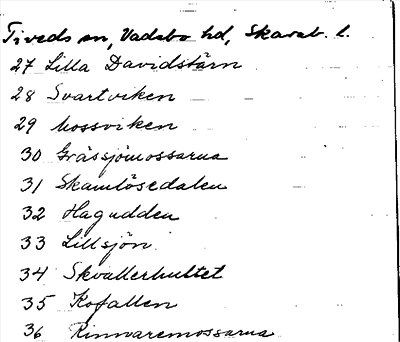 Tiveds sn, Vadsbo hd, Skarab. l.
27 Lilla Davidstärn
28 Svartviken
29 Mossviken
30 Grässjömossarna
31 Skamlösedalen
32 Hagudden
33 Lillsjön
34 Skvallerhultet
35 Kofallen
36 Rinnaremossarna